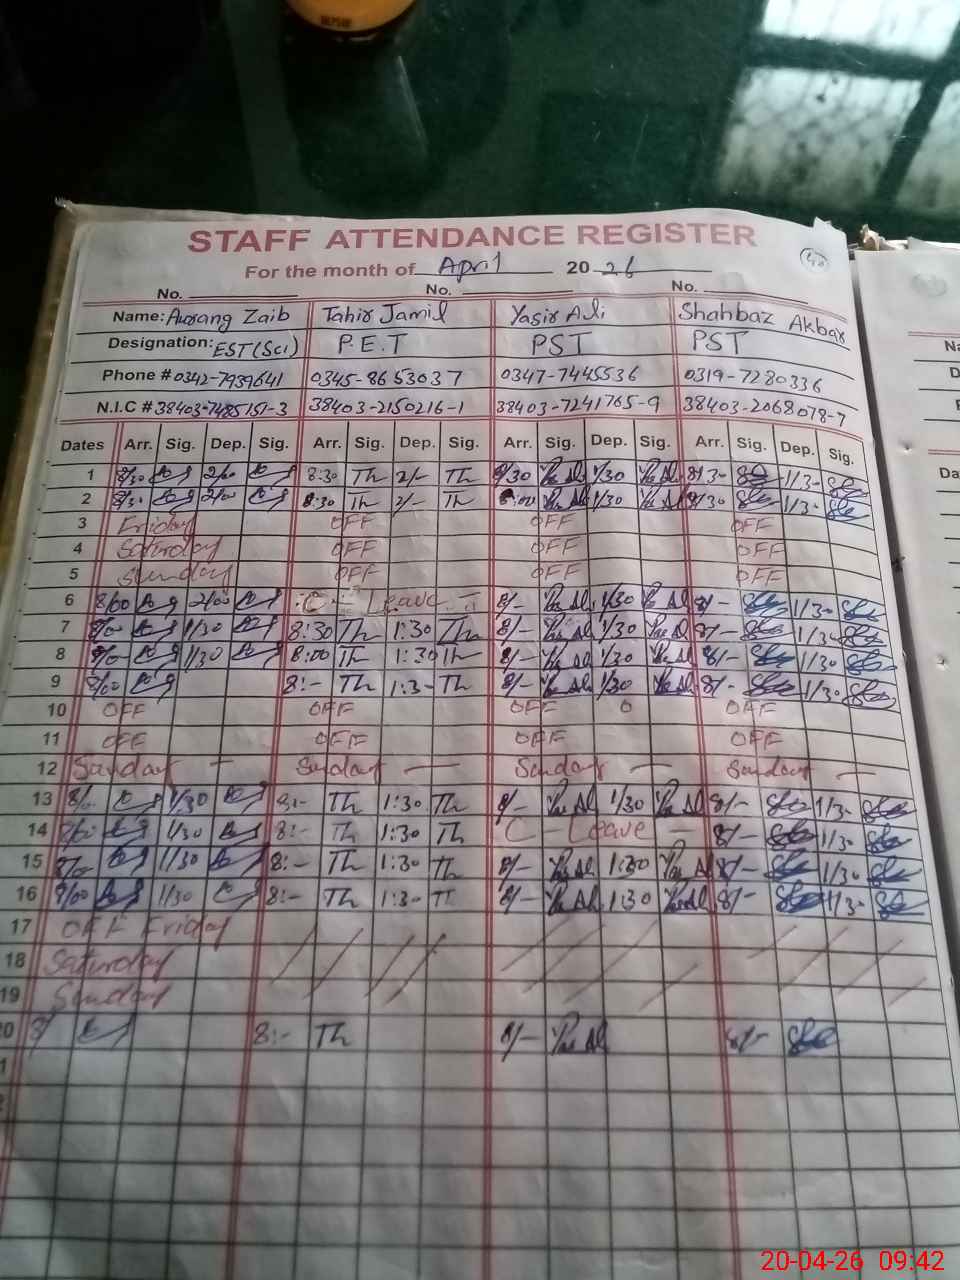 STAFF ATTENDANCE REGISTER
40
For the month of April 2026
No. No. No.
Name: Aurang Zaib Tahir Jamil Yasir Ali Shahbaz Akbar
Designation: EST (Sci) P.E.T PST PST
Phone # 0342-7939641 0345-8653037 0347-7445536 0319-7280336
N.I.C # 38403-7485151-3 38403-2150216-1 38403-7241765-9 38403-2068078-7
Dates Arr. Sig. Dep. Sig. Arr. Sig. Dep. Sig. Arr. Sig. Dep. Sig. Arr. Sig. Dep. Sig.
1 8/30 2/00 8:30 Th 2/- Th 8/30 1/30 8/3- 1/3-
2 8/30 2/00 8:30 Th 2/- Th 8:00 1/30 8/30 1/3-
3 Friday OFF OFF OFF
4 Saturday OFF OFF OFF
5 Sunday OFF OFF OFF
6 8/00 2/00 C Leave 8/- 1/30 8/- 1/30
7 8/00 1/30 8:30 Th 1:30 Th 8/- 1/30 8/- 1/3-
8 8/0- 1/30 8:00 Th 1:30 Th 8/- 1/30 8/- 1/30
9 8/00 8:- Th 1:3- Th 8/- 1/30 8/- 1/30
10 OFF OFF OFF 0 OFF
11 OFF OFF OFF OFF
12 Sunday Sunday Sunday Sunday
13 8/- 1/30 8:- Th 1:30 Th 8/- 1/30 8/- 1/3-
14 8/00 1/30 8:- Th 1:30 Th C - Leave - 8/- 1/3-
15 8/0- 1/30 8:- Th 1:30 Th 8/- 1:30 8/- 1/30
16 8/00 1/30 8:- Th 1:30 Th 8/- 1:30 8/- 1/3-
17 OFF Friday
18 Saturday
19 Sunday
20 8/ 8:- Th 8/- 8/-
20-04-26 09:42